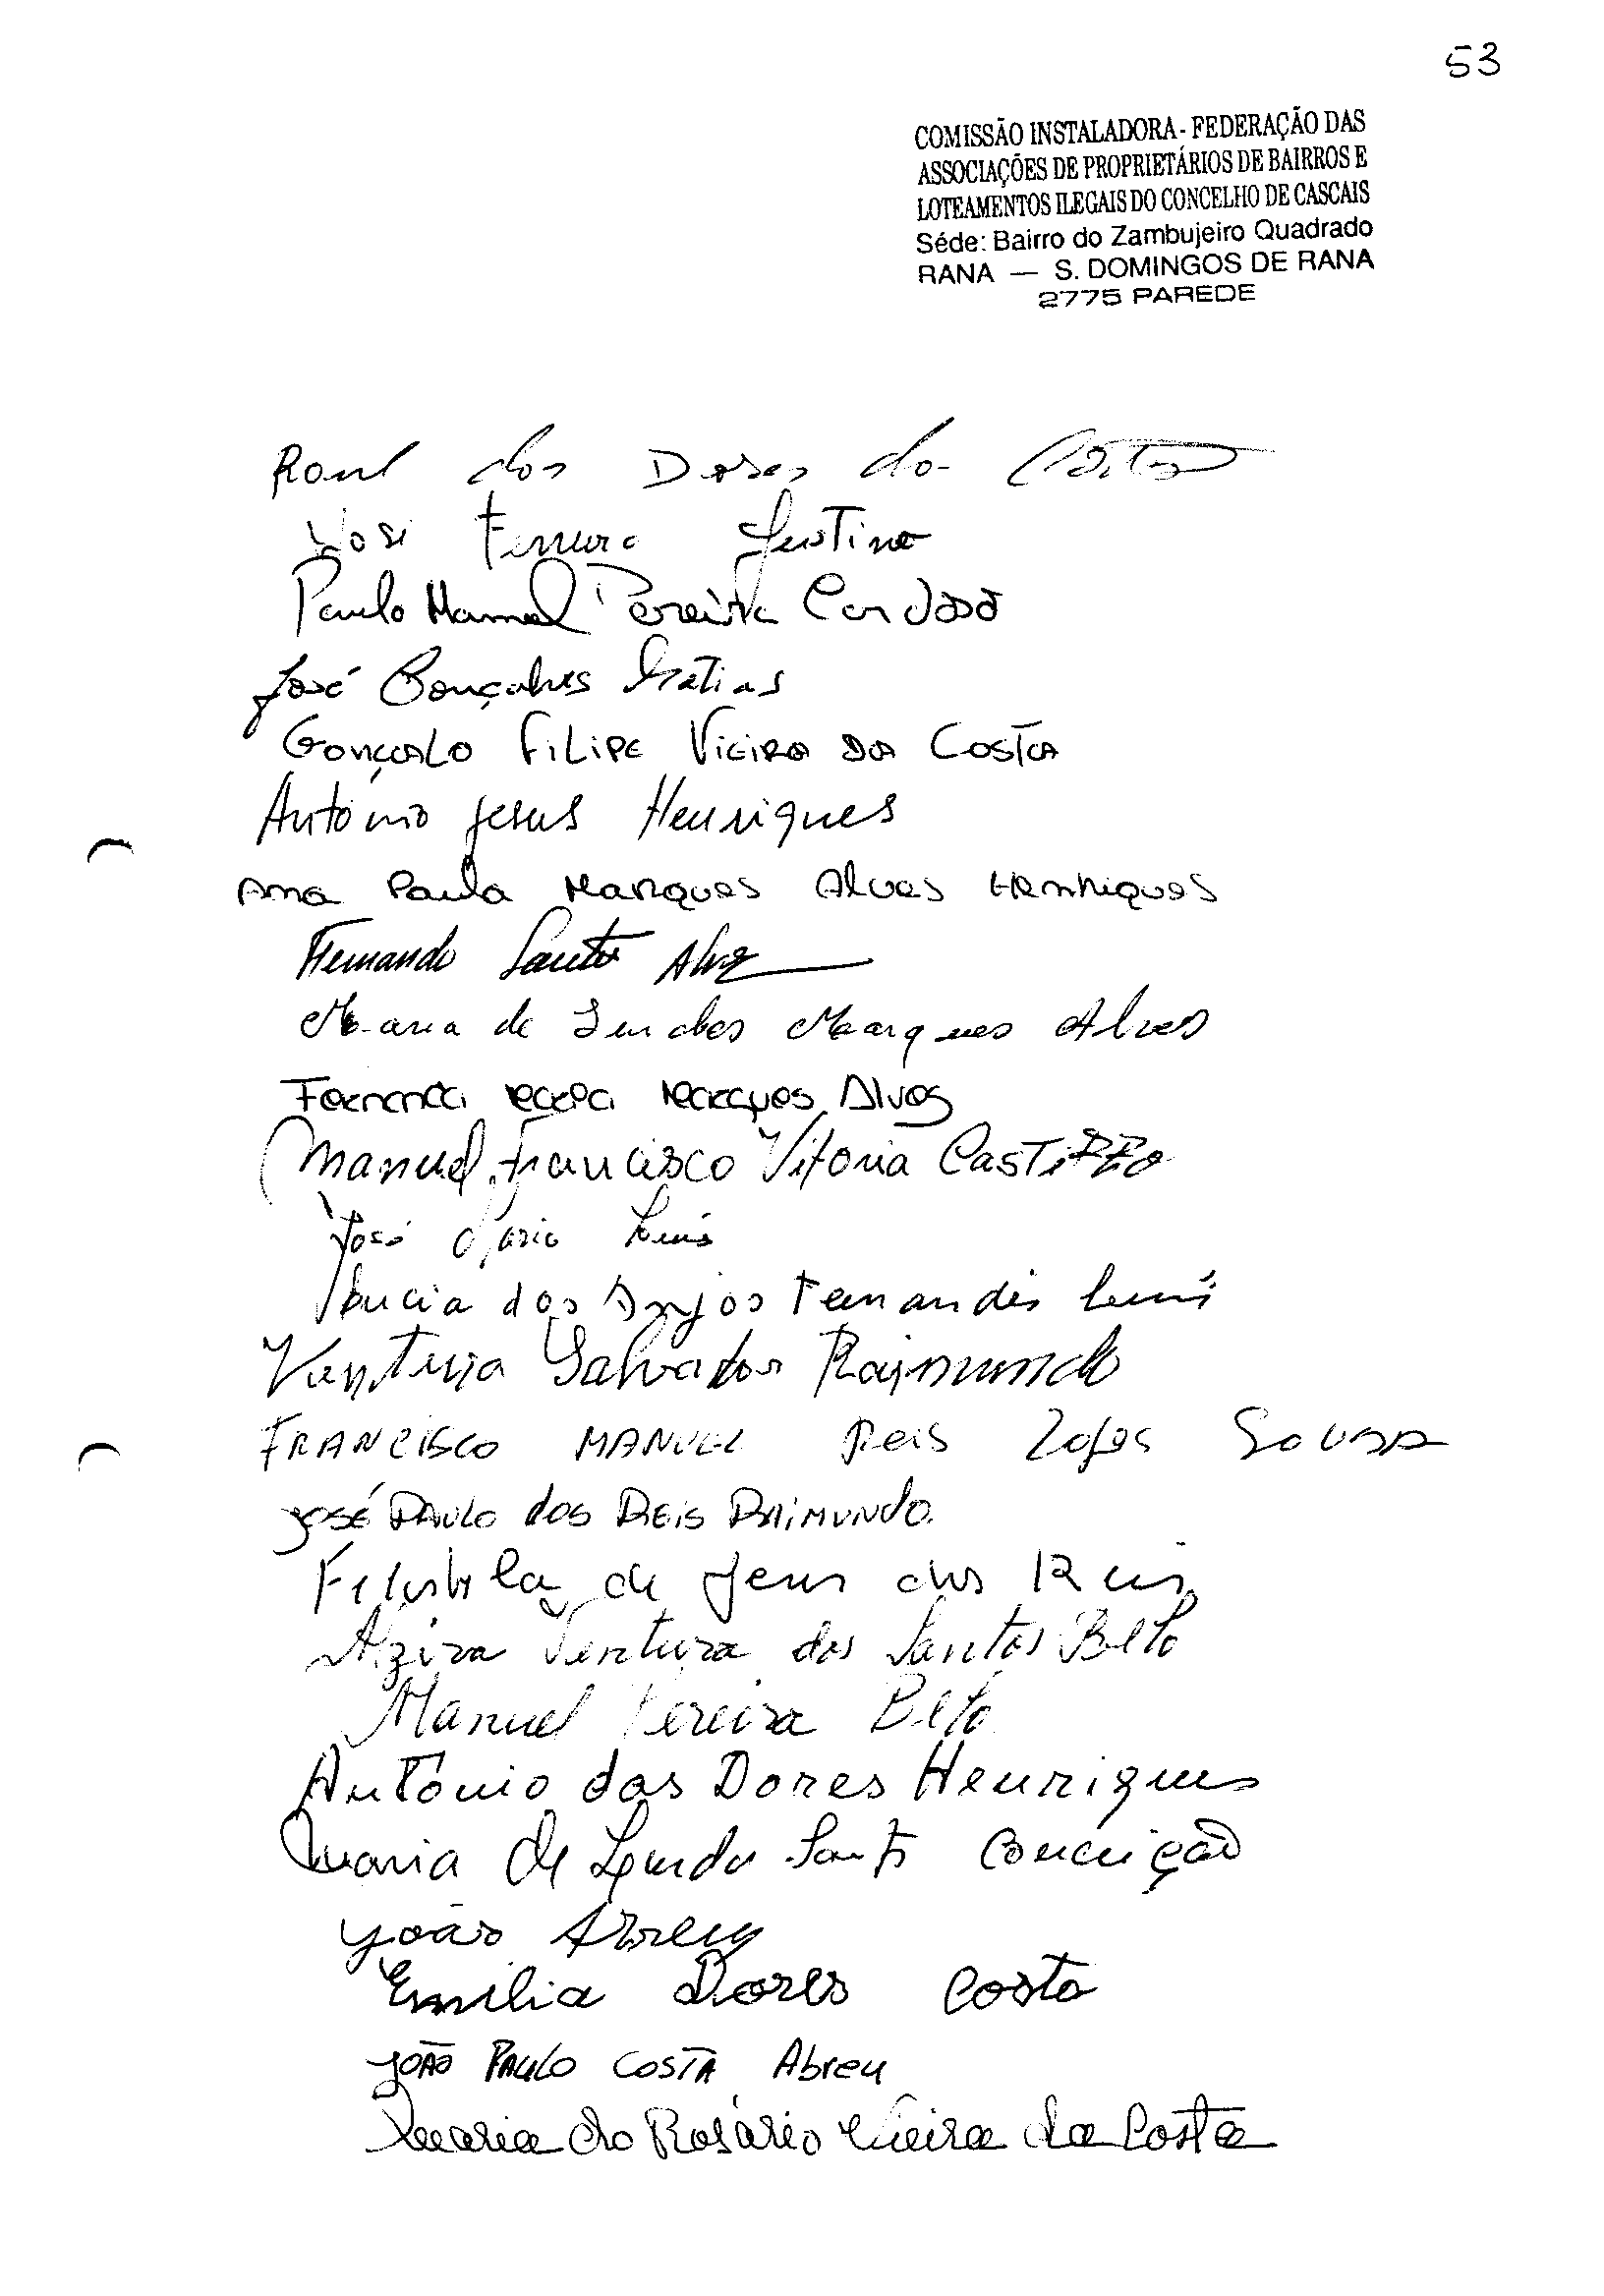 53
COMISSÃO INSTALADORA - FEDERAÇÃO DAS
ASSOCIAÇÕES DE PROPRIETÁRIOS DE BAIRROS E
LOTEAMENTOS ILEGAIS DO CONCELHO DE CASCAIS
Séde: Bairro do Zambujeiro Quadrado
RANA — S. DOMINGOS DE RANA
2775 PAREDE
Raul das Dores da Costa
José Ferreira Justino
Paulo Manuel Pereira Cardoso
José Gonçalves Matias
Gonçalo Filipe Vieira da Costa
António Jesus Henriques
Ana Paula Marques Alves Henriques
Fernando Santos Alves
Maria de Lurdes Marques Alves
Fernanda Marques Alves
Manuel Francisco Vitoria Castirro
José Mario Luis
Lucia dos Anjos Fernandes Luis
Ventura Salvador Raimundo
FRANCISCO MANUEL Reis Lopes Sousa
José PAULO dos REIS RAIMUNDO.
de Jesus dos Reis
Alzira Ventura dos Santos Belo
Manuel Pereira Belo
António das Dores Henriques
Maria de Lurdes Santos Conceição
João Abreu
Emilia Dores Costa
JOÃO PAULO COSTA Abreu
Maria do Rosário Vieira da Costa